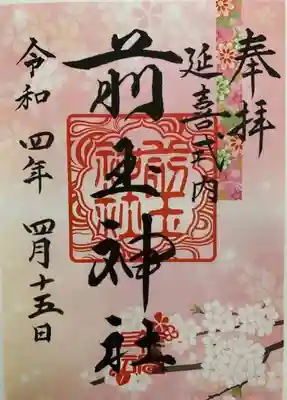 奉拝
延喜式内
前玉神社
前玉神社
令和四年四月十五日